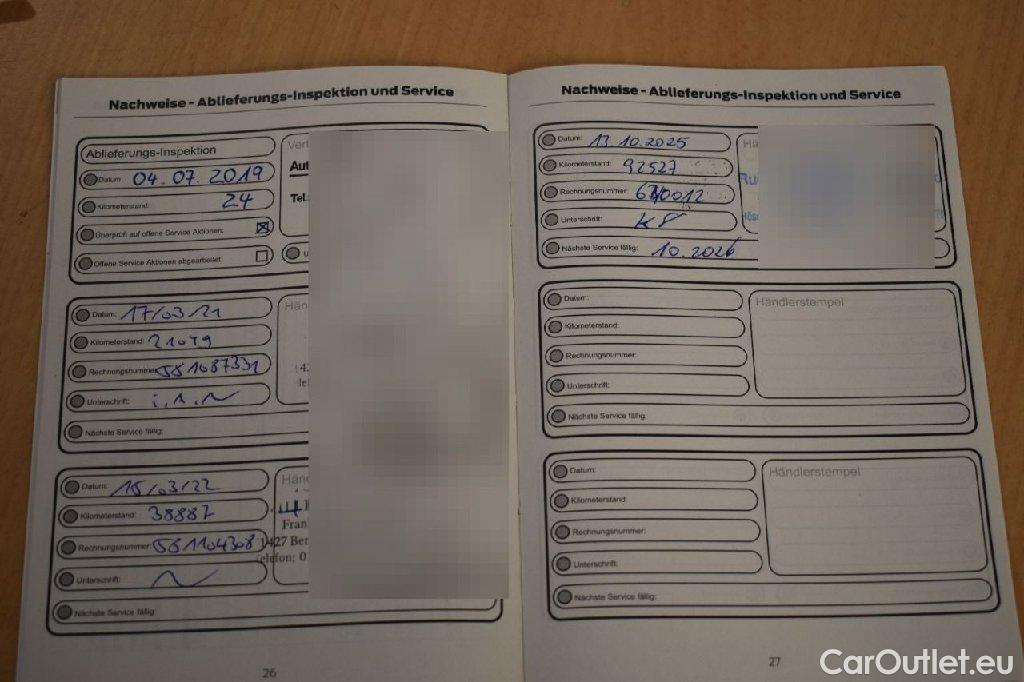 Nachweise - Ablieferungs-Inspektion und Service
Ablieferungs-Inspektion
Datum: 04.07.2019
Kilometerstand: 24
Überprüft auf offene Service Aktionen:
Offene Service Aktionen abgearbeitet:
Aut
Tel.:
Datum: 17/03/21
Kilometerstand: 21079
Rechnungsnummer: 581087331
Unterschrift:
Nächste Service fällig:
Hän
Datum: 15/03/22
Kilometerstand: 38887
Rechnungsnummer: 581104308
Unterschrift:
Nächste Service fällig:
Hän
Fran
1427 Ber
Telefon: 0
26
Nachweise - Ablieferungs-Inspektion und Service
Datum: 13.10.2025
Kilometerstand: 92527
Rechnungsnummer:
Unterschrift:
Nächste Service fällig: 10.2026
Hä
Ru
Datum:
Kilometerstand:
Rechnungsnummer:
Unterschrift:
Nächste Service fällig:
Händlerstempel
Datum:
Kilometerstand:
Rechnungsnummer:
Unterschrift:
Nächste Service fällig:
Händlerstempel
27
CarOutlet.eu